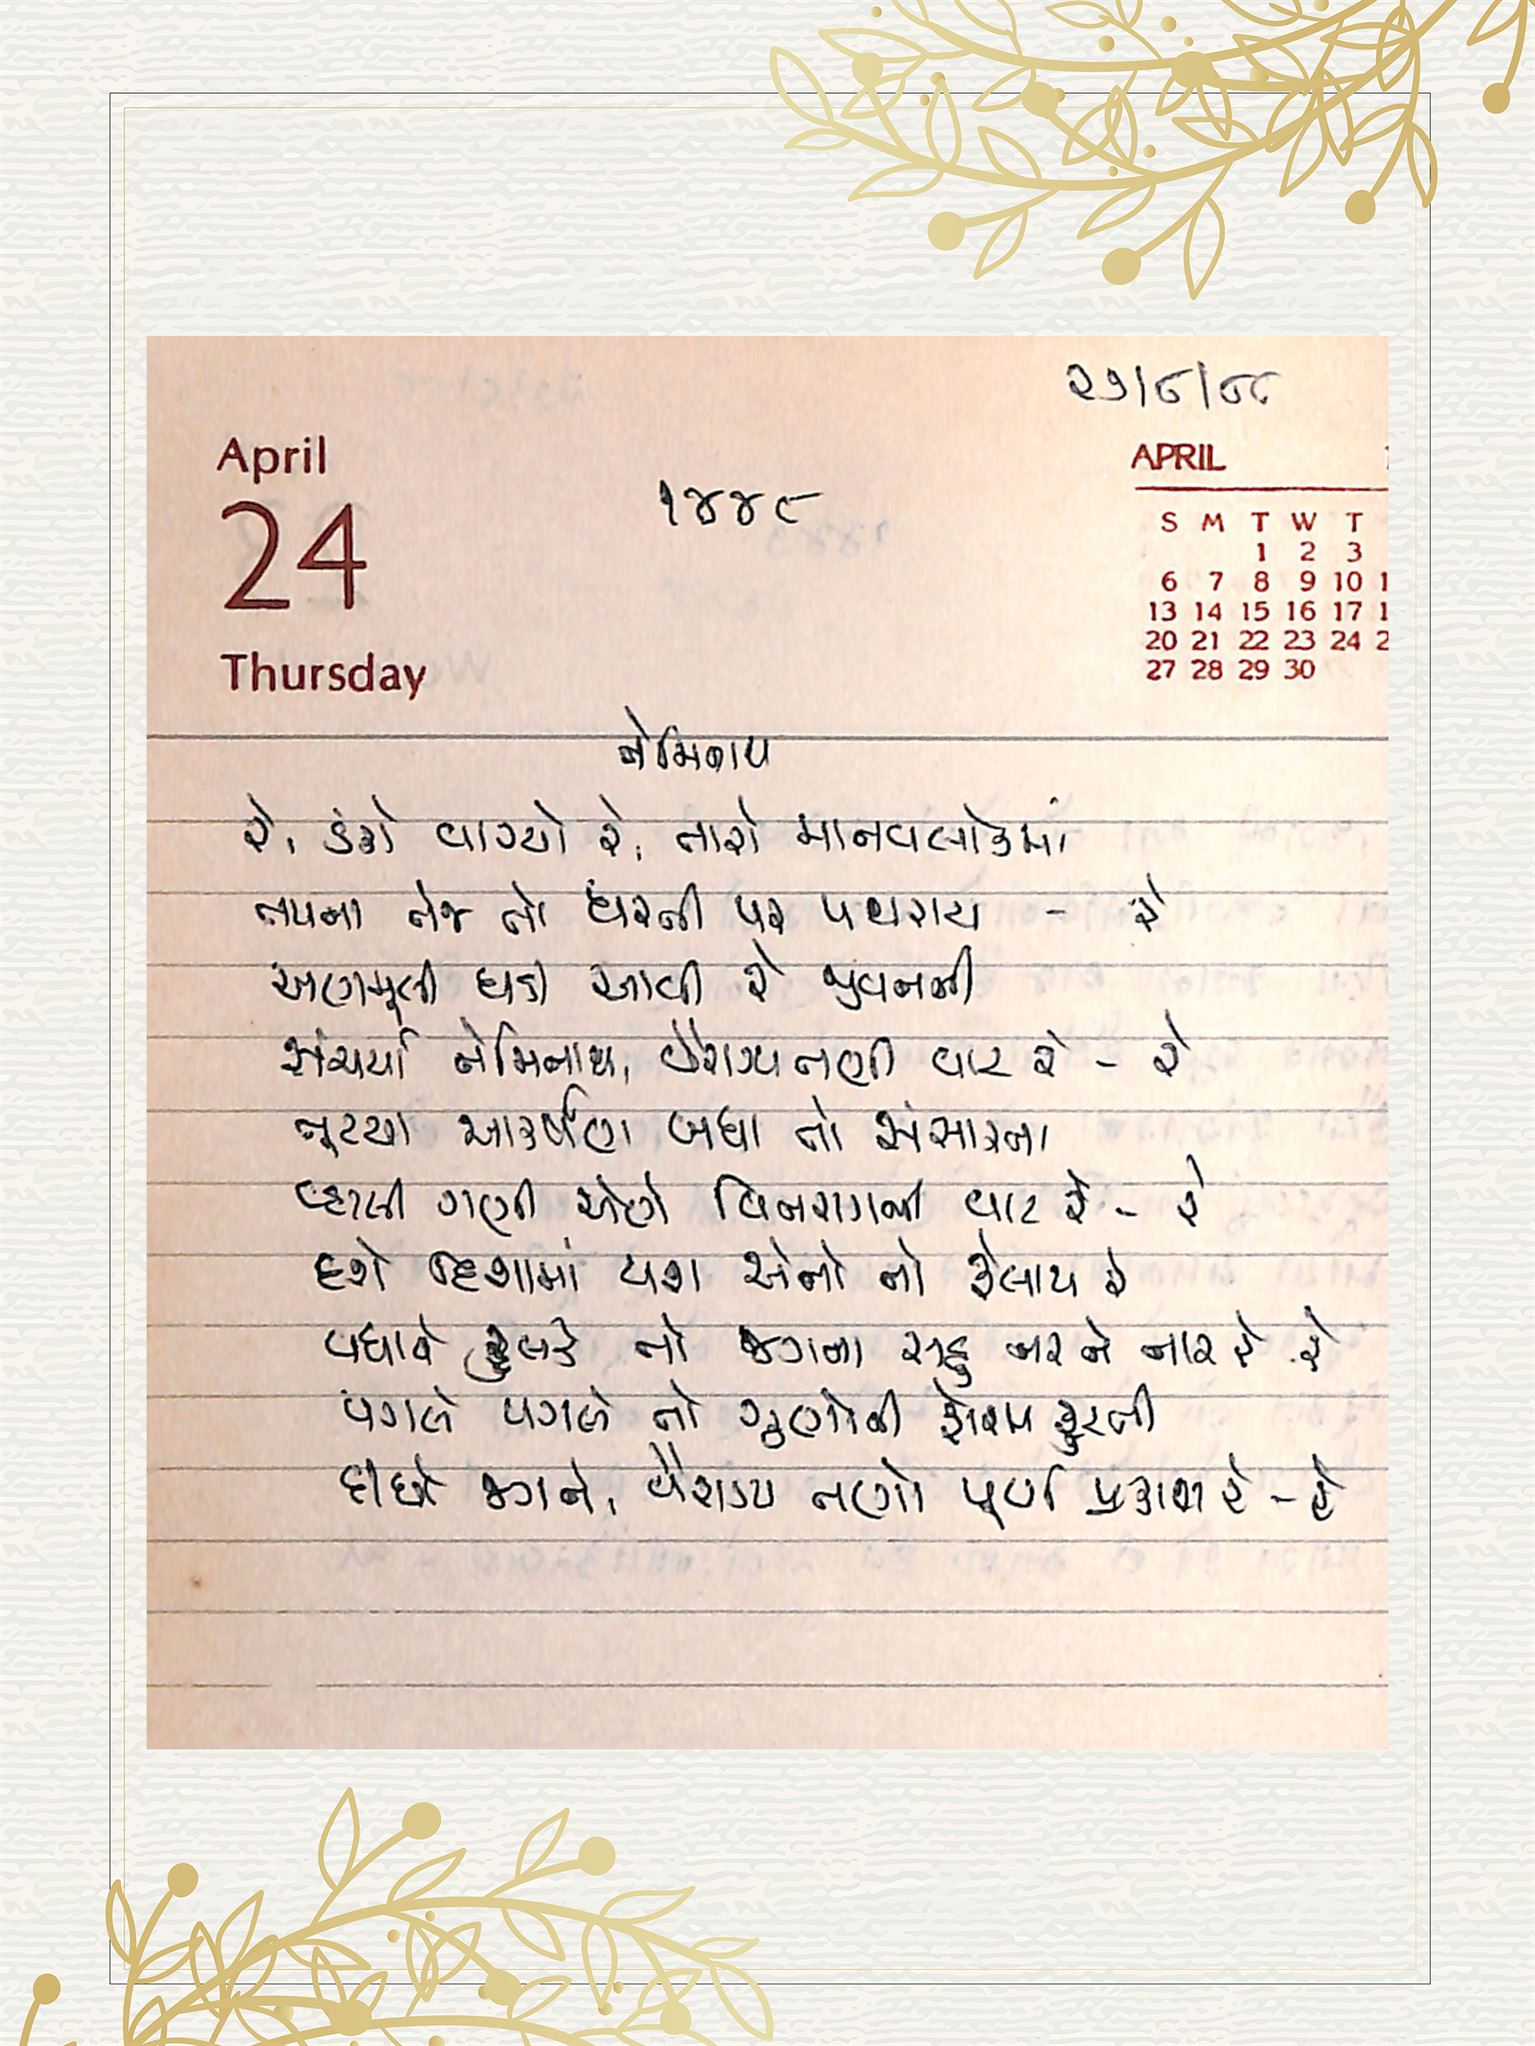 ૨૭/૮/૯૮
April
24
Thursday
૧૪૪૯
APRIL
S M T W T
1 2 3
6 7 8 9 10 1
13 14 15 16 17 1
20 21 22 23 24 2
27 28 29 30
નેમિનાથ
રે, ડંકો વાગ્યો રે, તારો માનવલોકમાં
તપના તેજ તો ધરતી પર પથરાય - રે
અણમૂલી ઘડી આવી રે જીવનની
સંચર્યા નેમિનાથ, વૈરાગ્ય તણી વાટ રે - રે
તૂટયા આકર્ષણ બધા તો સંસારના
વ્હાલી ગણી એણે વિતરાગની વાટ રે - રે
દશે દિશામાં યશ એનો તો ફેલાય રે
વધાવે ફુલડે તો જગના સહુ નર ને નાર રે રે
પગલે પગલે તો ગુણોની ફોરમ ફુરતી
દીઠો જગને, વૈરાગ્ય તણો પૂર્ણ પ્રકાશ રે - રે